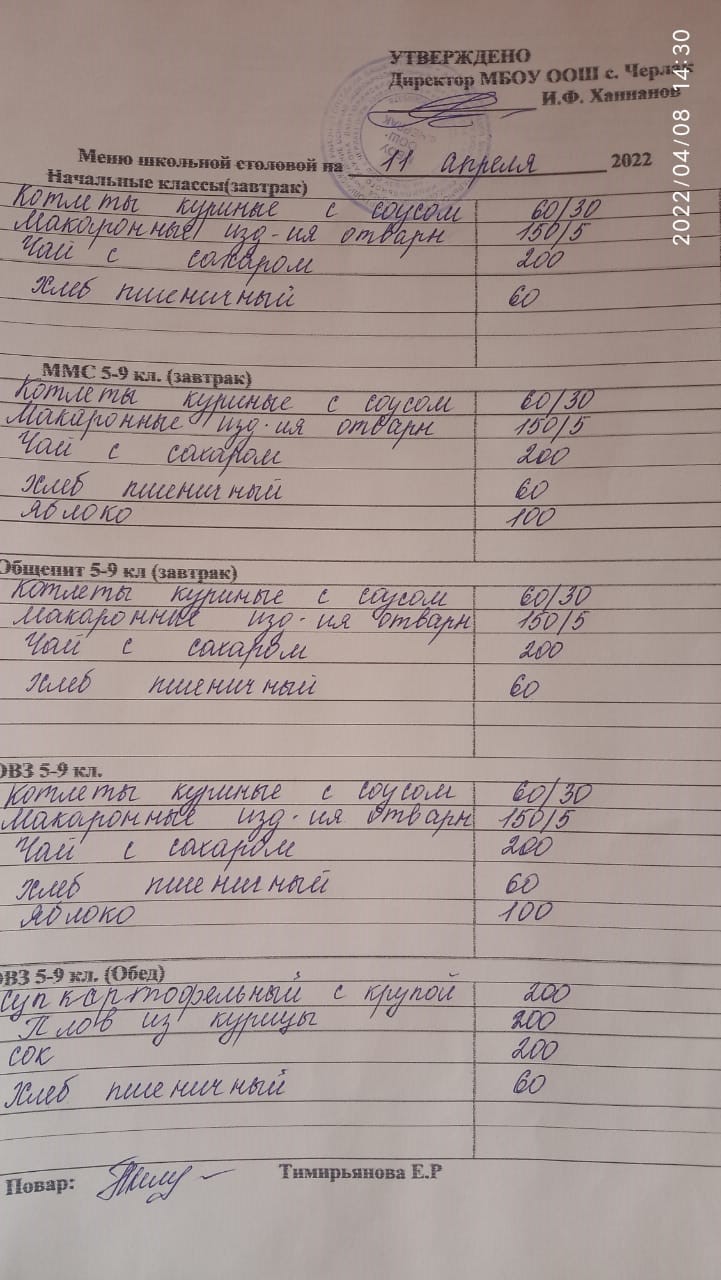 УТВЕРЖДЕНО
Директор МБОУ ООШ с. Черлак
И.Ф. Ханнанов
Меню школьной столовой на 11 апреля 2022
Начальные классы(завтрак)
Котлеты куриные с соусом 60/30
Макаронные изд-ия отварн 150/5
Чай с сахаром 200
Хлеб пшеничный 60
ММС 5-9 кл. (завтрак)
Котлеты куриные с соусом 60/30
Макаронные изд-ия отварн 150/5
Чай с сахаром 200
Хлеб пшеничный 60
Яблоко 100
Общепит 5-9 кл (завтрак)
Котлеты куриные с соусом 60/30
Макаронные изд-ия отварн 150/5
Чай с сахаром 200
Хлеб пшеничный 60
ОВЗ 5-9 кл.
Котлеты куриные с соусом 60/30
Макаронные изд-ия отварн 150/5
Чай с сахаром 200
Хлеб пшеничный 60
Яблоко 100
ОВЗ 5-9 кл. (Обед)
Суп картофельный с крупой 200
Плов из курицы 200
сок 200
Хлеб пшеничный 60
Повар: Тимирьянова Е.Р
2022/04/08 14:30